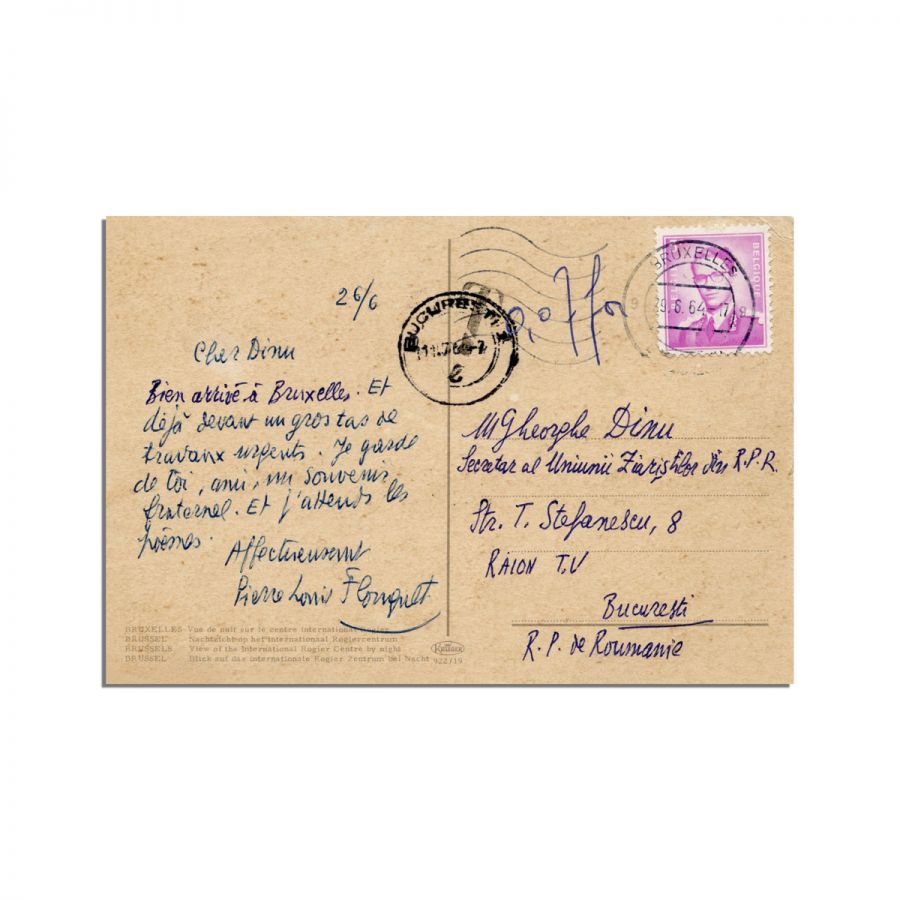 26/6
Cher Dinu
Bien arrivé à Bruxelles. Et
déjà devant un gros tas de
travaux urgents. Je garde
de toi, ami, un souvenir
fraternel. Et j'attends les
poèmes.
Affectueusement
Pierre Louis Flouquet
BRUXELLES Vue de nuit sur le centre international Rogier
BRUSSEL Nachtzicht op het internationaal Rogiercentrum
BRUSSELS View of the International Rogier Centre by night
BRÜSSEL Blick auf das internationale Rogier Zentrum bei Nacht
KRÜGER
922/19
T
BUCURESTI
BRUXELLES
29.6.64
BELGIQUE
M Gheorghe Dinu
Secretar al Uniunii Ziariștilor din R.P.R.
Str. T. Stefanescu, 8
RAION T.V
Bucuresti
R.P. de Roumanie